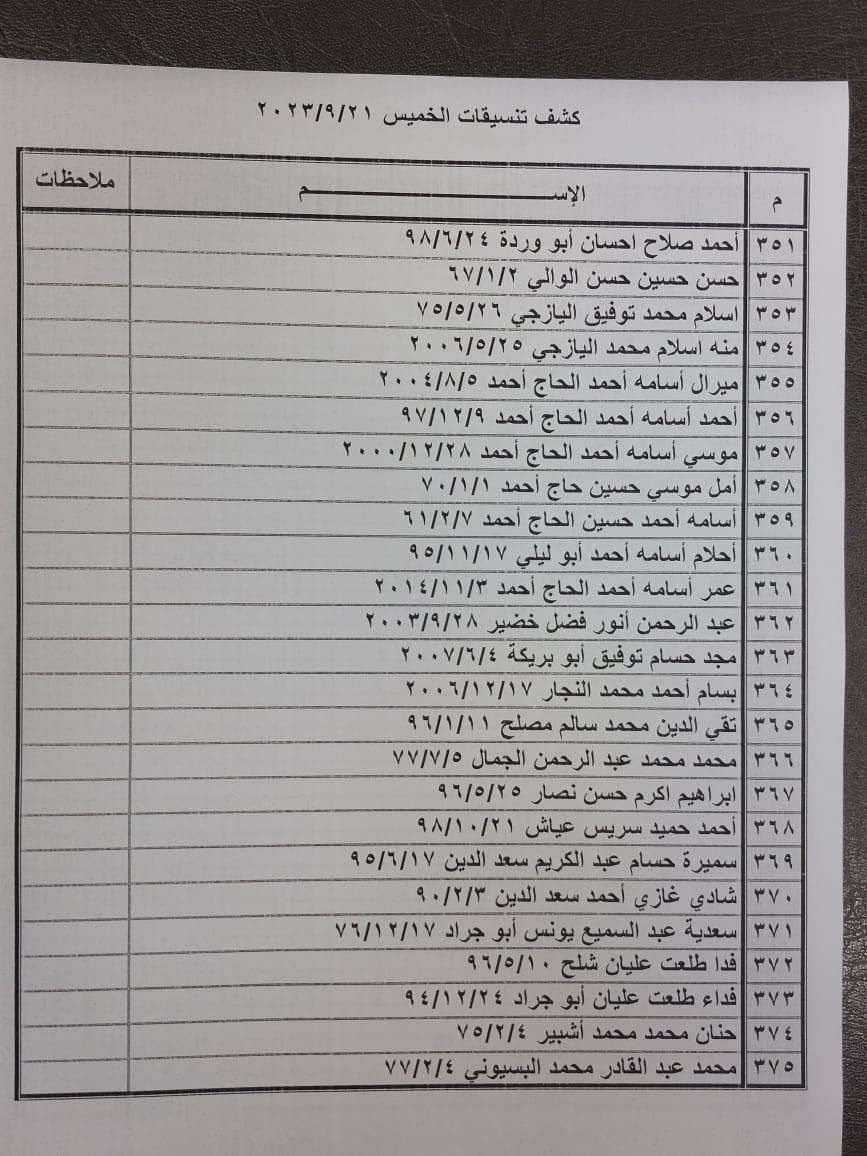 كشف تنسيقات الخميس ٢٠٢٣/٩/٢١
م الإســـــــــم ملاحظات
٣٥١ أحمد صلاح احسان أبو وردة ٩٨/٦/٢٤
٣٥٢ حسن حسين حسن الوالي ٦٧/١/٢
٣٥٣ اسلام محمد توفيق اليازجي ٧٥/٥/٢٦
٣٥٤ منه اسلام محمد اليازجي ٢٠٠٦/٥/٢٥
٣٥٥ ميرال أسامه أحمد الحاج أحمد ٢٠٠٤/٨/٥
٣٥٦ أحمد أسامه أحمد الحاج أحمد ٩٧/١٢/٩
٣٥٧ موسي أسامه أحمد الحاج أحمد ٢٠٠٠/١٢/٢٨
٣٥٨ أمل موسي حسين حاج أحمد ٧٠/١/١
٣٥٩ أسامه أحمد حسين الحاج أحمد ٦١/٢/٧
٣٦٠ أحلام أسامه أحمد أبو ليلي ٩٥/١١/١٧
٣٦١ عمر أسامه أحمد الحاج أحمد ٢٠١٤/١١/٣
٣٦٢ عبد الرحمن أنور فضل خضير ٢٠٠٣/٩/٢٨
٣٦٣ مجد حسام توفيق أبو بريكة ٢٠٠٧/٦/٤
٣٦٤ بسام أحمد محمد النجار ٢٠٠٦/١٢/١٧
٣٦٥ تقي الدين محمد سالم مصلح ٩٦/١/١١
٣٦٦ محمد محمد عبد الرحمن الجمال ٧٧/٧/٥
٣٦٧ ابراهيم اكرم حسن نصار ٩٦/٥/٢٥
٣٦٨ أحمد حميد سريس عياش ٩٨/١٠/٢١
٣٦٩ سميرة حسام عبد الكريم سعد الدين ٩٥/٦/١٧
٣٧٠ شادي غازي أحمد سعد الدين ٩٠/٢/٣
٣٧١ سعدية عبد السميع يونس أبو جراد ٧٦/١٢/١٧
٣٧٢ فدا طلعت عليان شلح ٩٦/٥/١٠
٣٧٣ فداء طلعت عليان أبو جراد ٩٤/١٢/٢٤
٣٧٤ حنان محمد محمد أشبير ٧٥/٢/٤
٣٧٥ محمد عبد القادر محمد البسيوني ٧٧/٢/٤